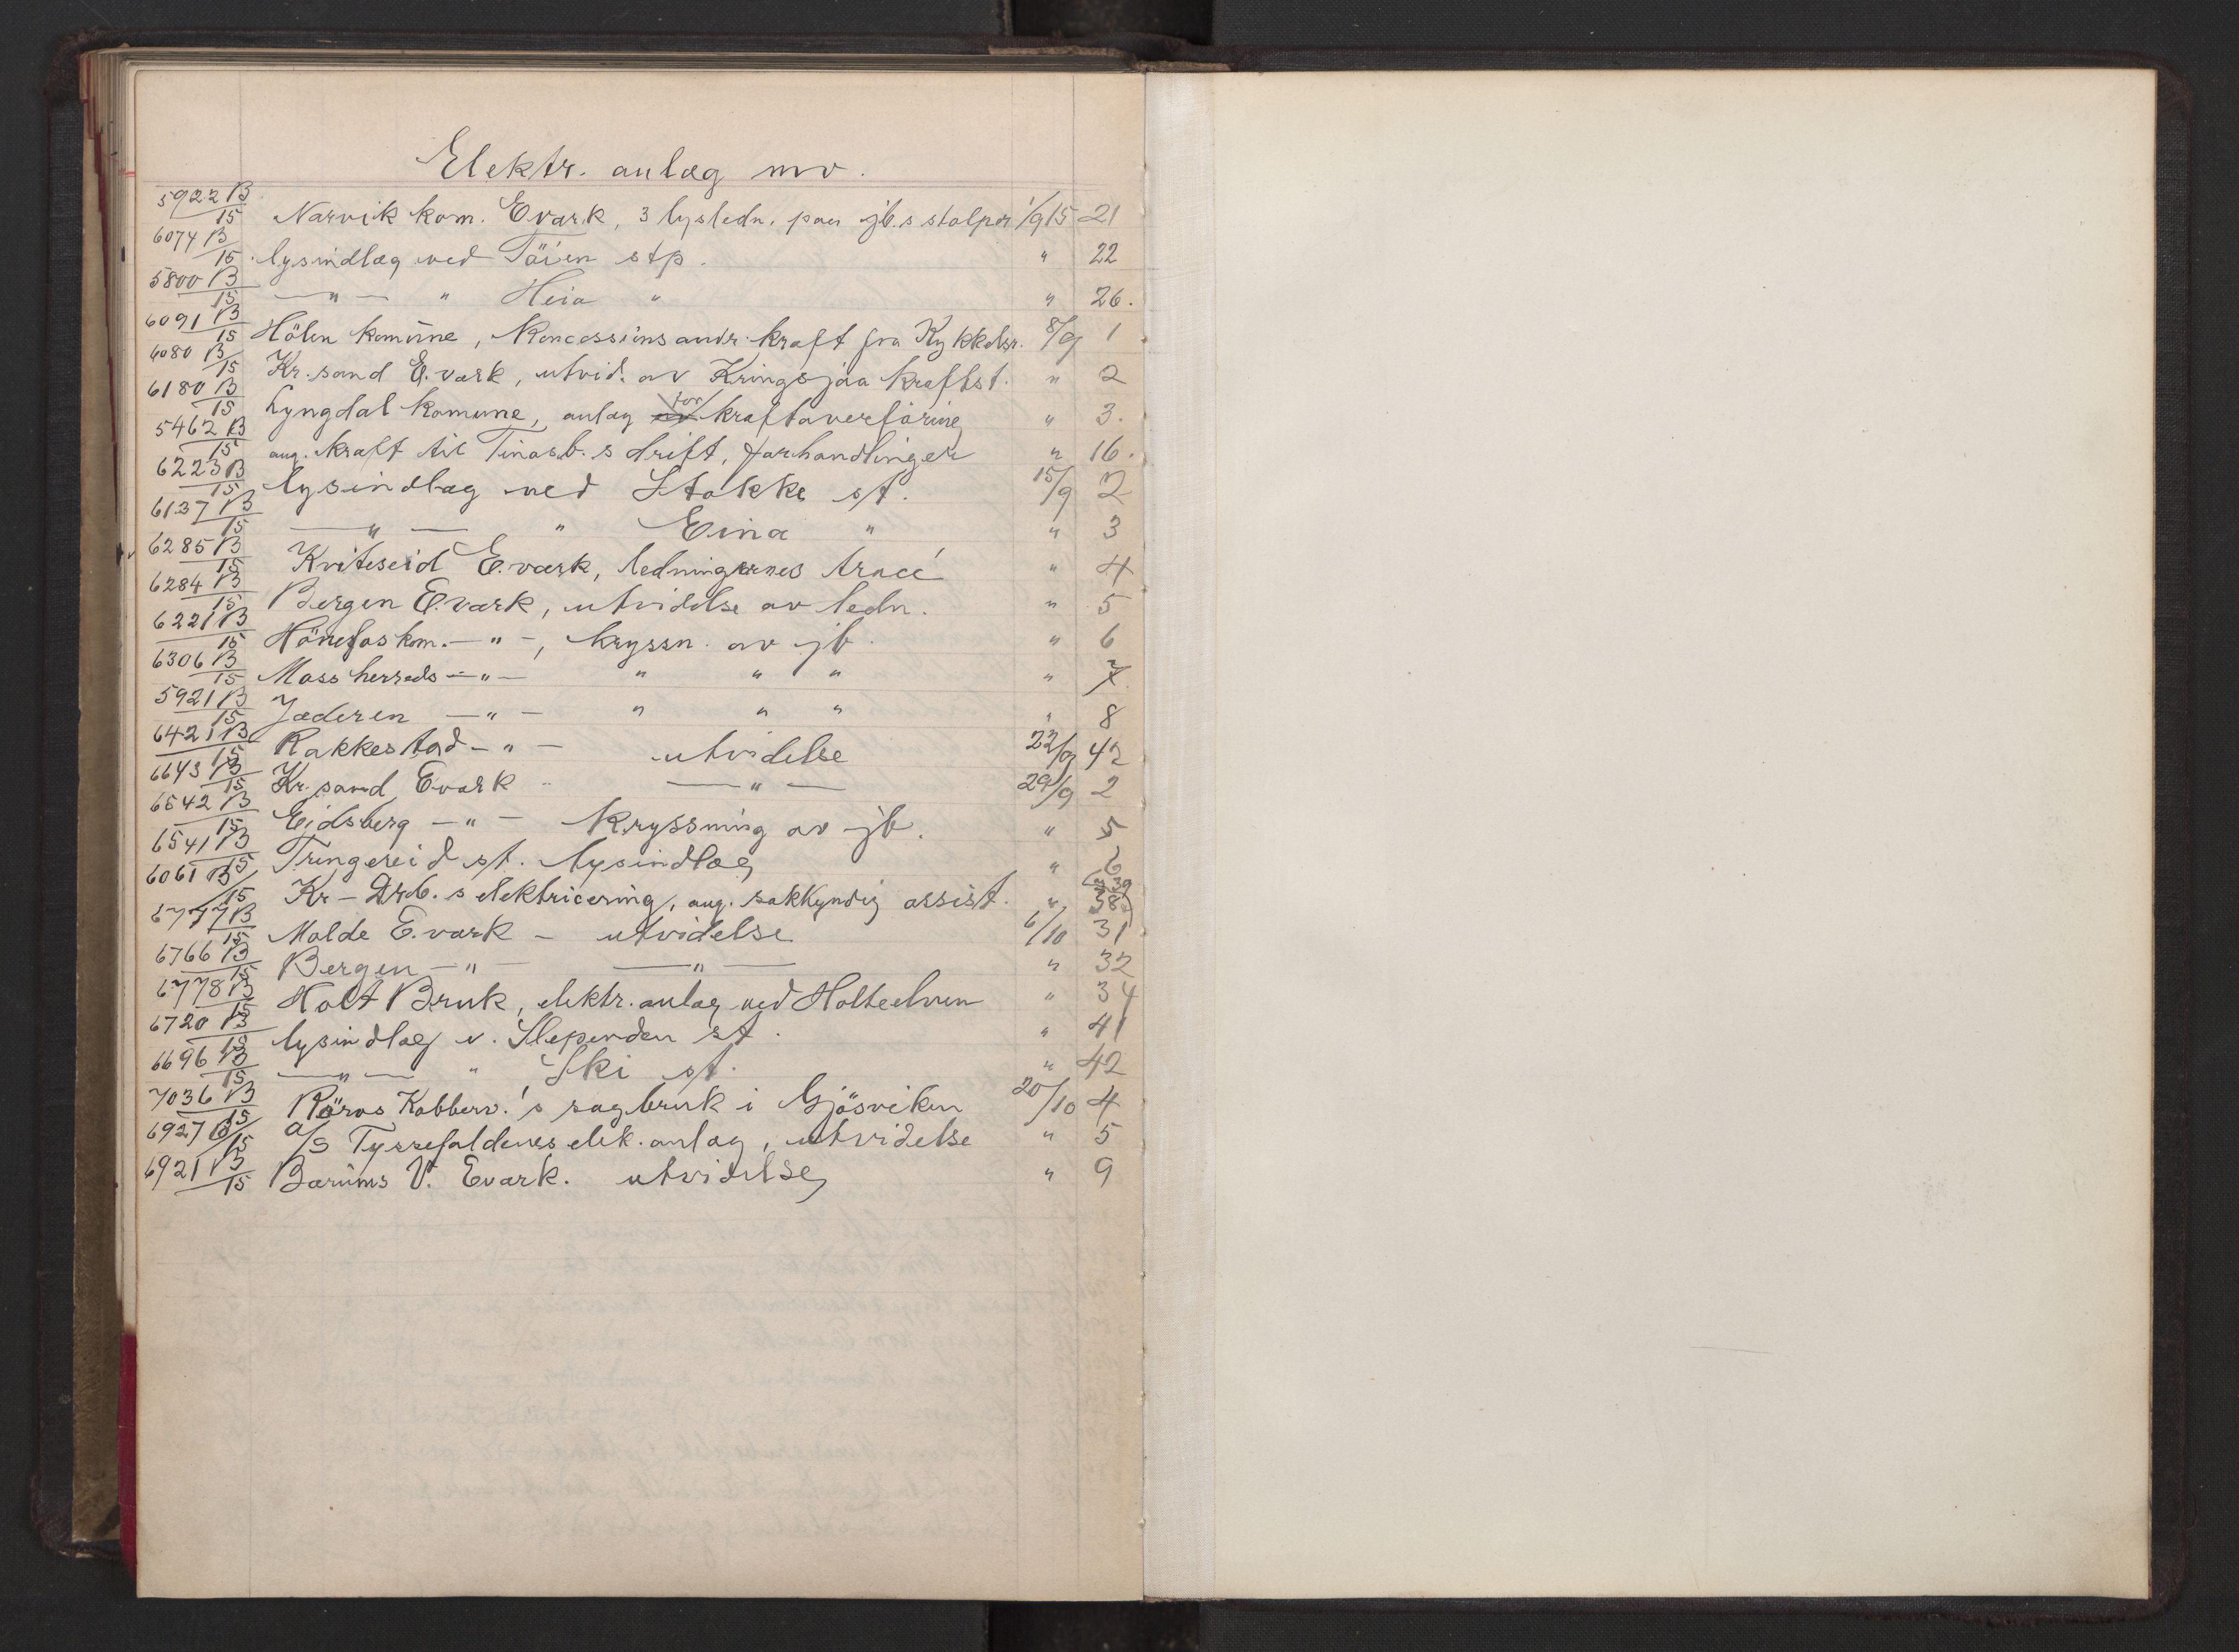 Elektr. anlæg mv.
5922 B/15 Narvik kom. Everk, 3 lysledn. paa jb.s stolper 1/9 15 21
6074 B/15 lysindlæg ved Töien stp. " 22
5800 B/15 —"— " Heia " " 26.
6091 B/15 Hölen komune, Koncessionsandr. kraft fra Kykkelsr. 8/9 1
6080 B/15 Kr.sand E.verk, utvid. av Kringsjaa kraftst. " 2
6180 B/15 Lyngdal komune, anlæg for kraftoverföring " 3.
5462 B/15 ang. kraft til Tinosb.s drift, forhandlinger " 16.
6223 B/15 lysindlæg ved Stokke st. 15/9 2
6137 B/15 —"— " Eina " " 3
6285 B/15 Kviteseid E.verk, ledningernes tracé " 4
6284 B/15 Bergen E.verk, utvidelse av ledn. " 5
6221 B/15 Hönefos kom. —"—, kryssn. av jb. " 6
6306 B/15 Moss herreds —"— " " " " 7
5921 B/15 Jæderen —"— " " " " 8
6421 B/15 Rakkestad —"— utvidelse 22/9 42
6643 B/15 Kr.sand Everk —"— 29/9 2
6542 B/15 Eidsberg —"— Kryssning av jb. " 5
6541 B/15 Trengereid st. lysindlæg " 6
6061 B/15 Kr-Drb.s elektricering, ang. sakkyndig assist. " 38
6777 B/15 Molde E.verk — utvidelse 6/10 31
6766 B/15 Bergen —"— —"— " 32
6778 B/15 Holt Bruk, elektr. anlæg ved Holteelven " 34
6720 B/15 lysindlæg v. Slependen st. " 41
6696 B/15 —"— " Ski st. " 42
7036 B/15 Röros Kobberv.'s sagbruk i Gjösviken 20/10 4
6927 B/15 A/S Tyssefaldenes elek. anlæg, utvidelse " 5
6921 B/15 Bærums V. Everk. utvidelse " 9